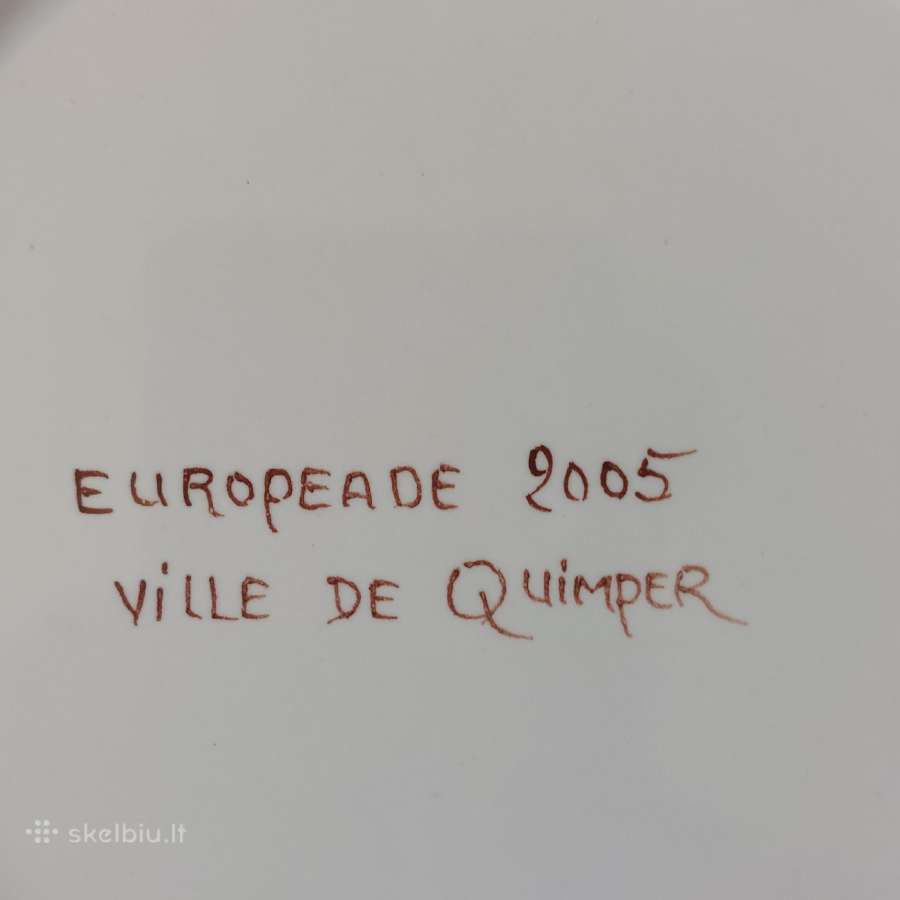 EUROPEADE 2005
ViLLE DE QUiMPER
skelbiu.lt